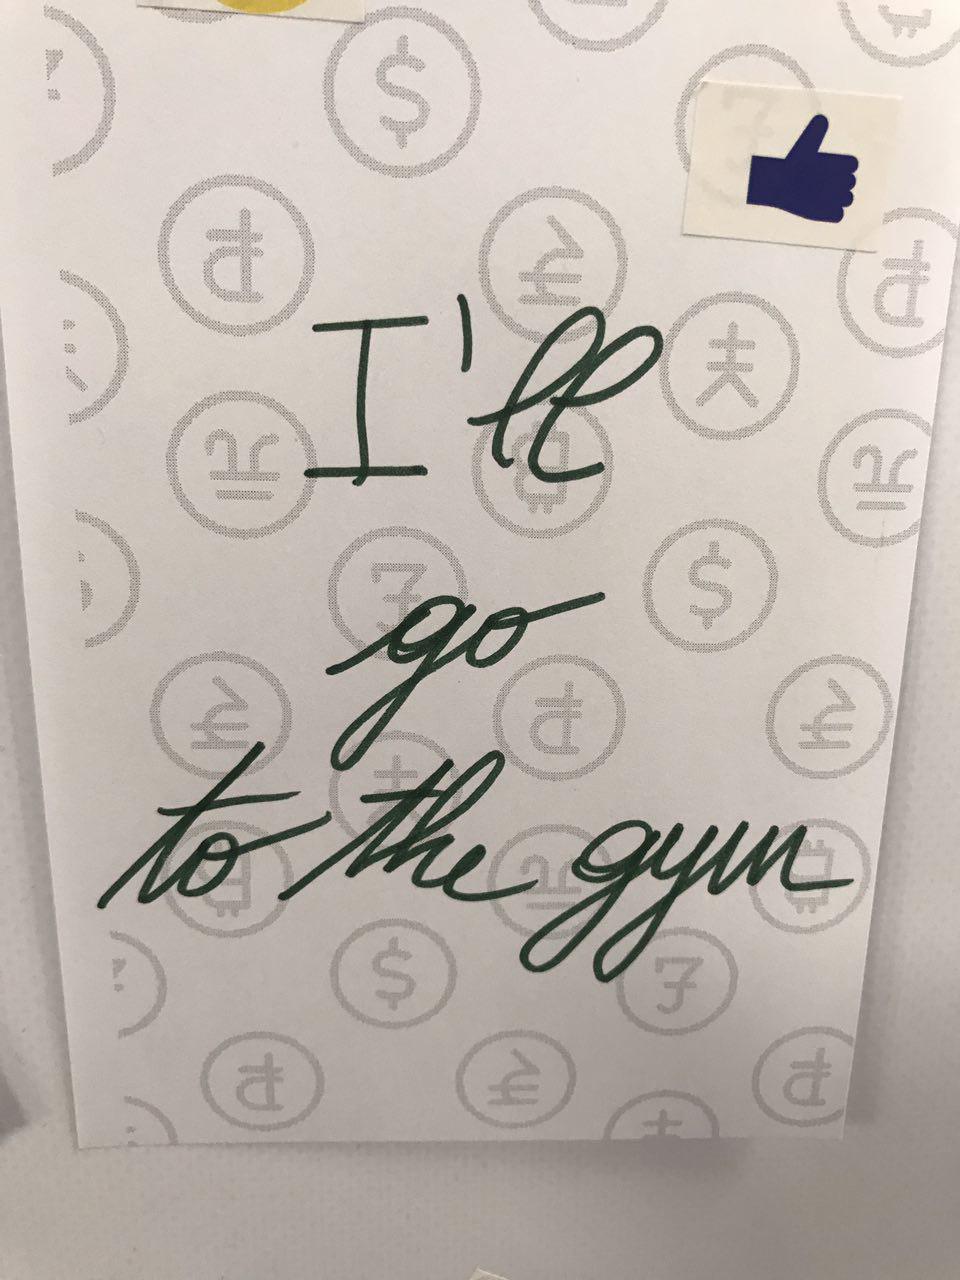 I'll
go
to the gym